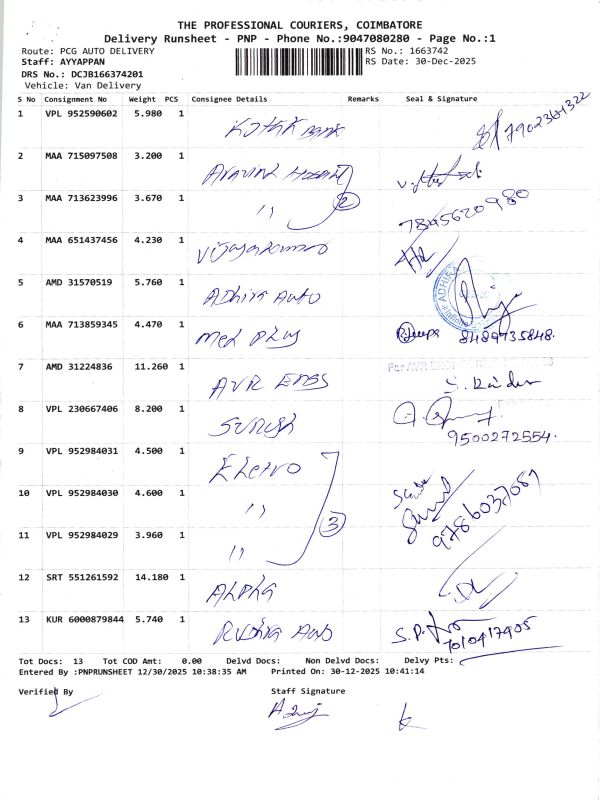 THE PROFESSIONAL COURIERS, COIMBATORE
Delivery Runsheet - PNP - Phone No.:9047080280 - Page No.:1
Route: PCG AUTO DELIVERY RS No.: 1663742
Staff: AYYAPPAN RS Date: 30-Dec-2025
DRS No.: DCJB166374201
Vehicle: Van Delivery
S No Consignment No Weight PCS Consignee Details Remarks Seal & Signature
1 VPL 952590602 5.980 1 Kotak Bank
2 MAA 715097508 3.200 1
3 MAA 713623996 3.670 1 ,, 2 7845620980
4 MAA 651437456 4.230 1
5 AMD 31570519 5.760 1 Adhira Auto ADHIRA
6 MAA 713859345 4.470 1 Med Plus 8489735848.
7 AMD 31224836 11.260 1 AVR ENGG For AVR
8 VPL 230667406 8.200 1 Suresh 9500272554.
9 VPL 952984031 4.500 1
10 VPL 952984030 4.600 1 ,, 3 9786037087
11 VPL 952984029 3.960 1 ,,
12 SRT 551261592 14.180 1 Alpha
13 KUR 6000879844 5.740 1 S.P. 7010417905
Tot Docs: 13 Tot COD Amt: 0.00 Delvd Docs: Non Delvd Docs: Delvy Pts:
Entered By :PNPRUNSHEET 12/30/2025 10:38:35 AM Printed On: 30-12-2025 10:41:14
Verified By Staff Signature